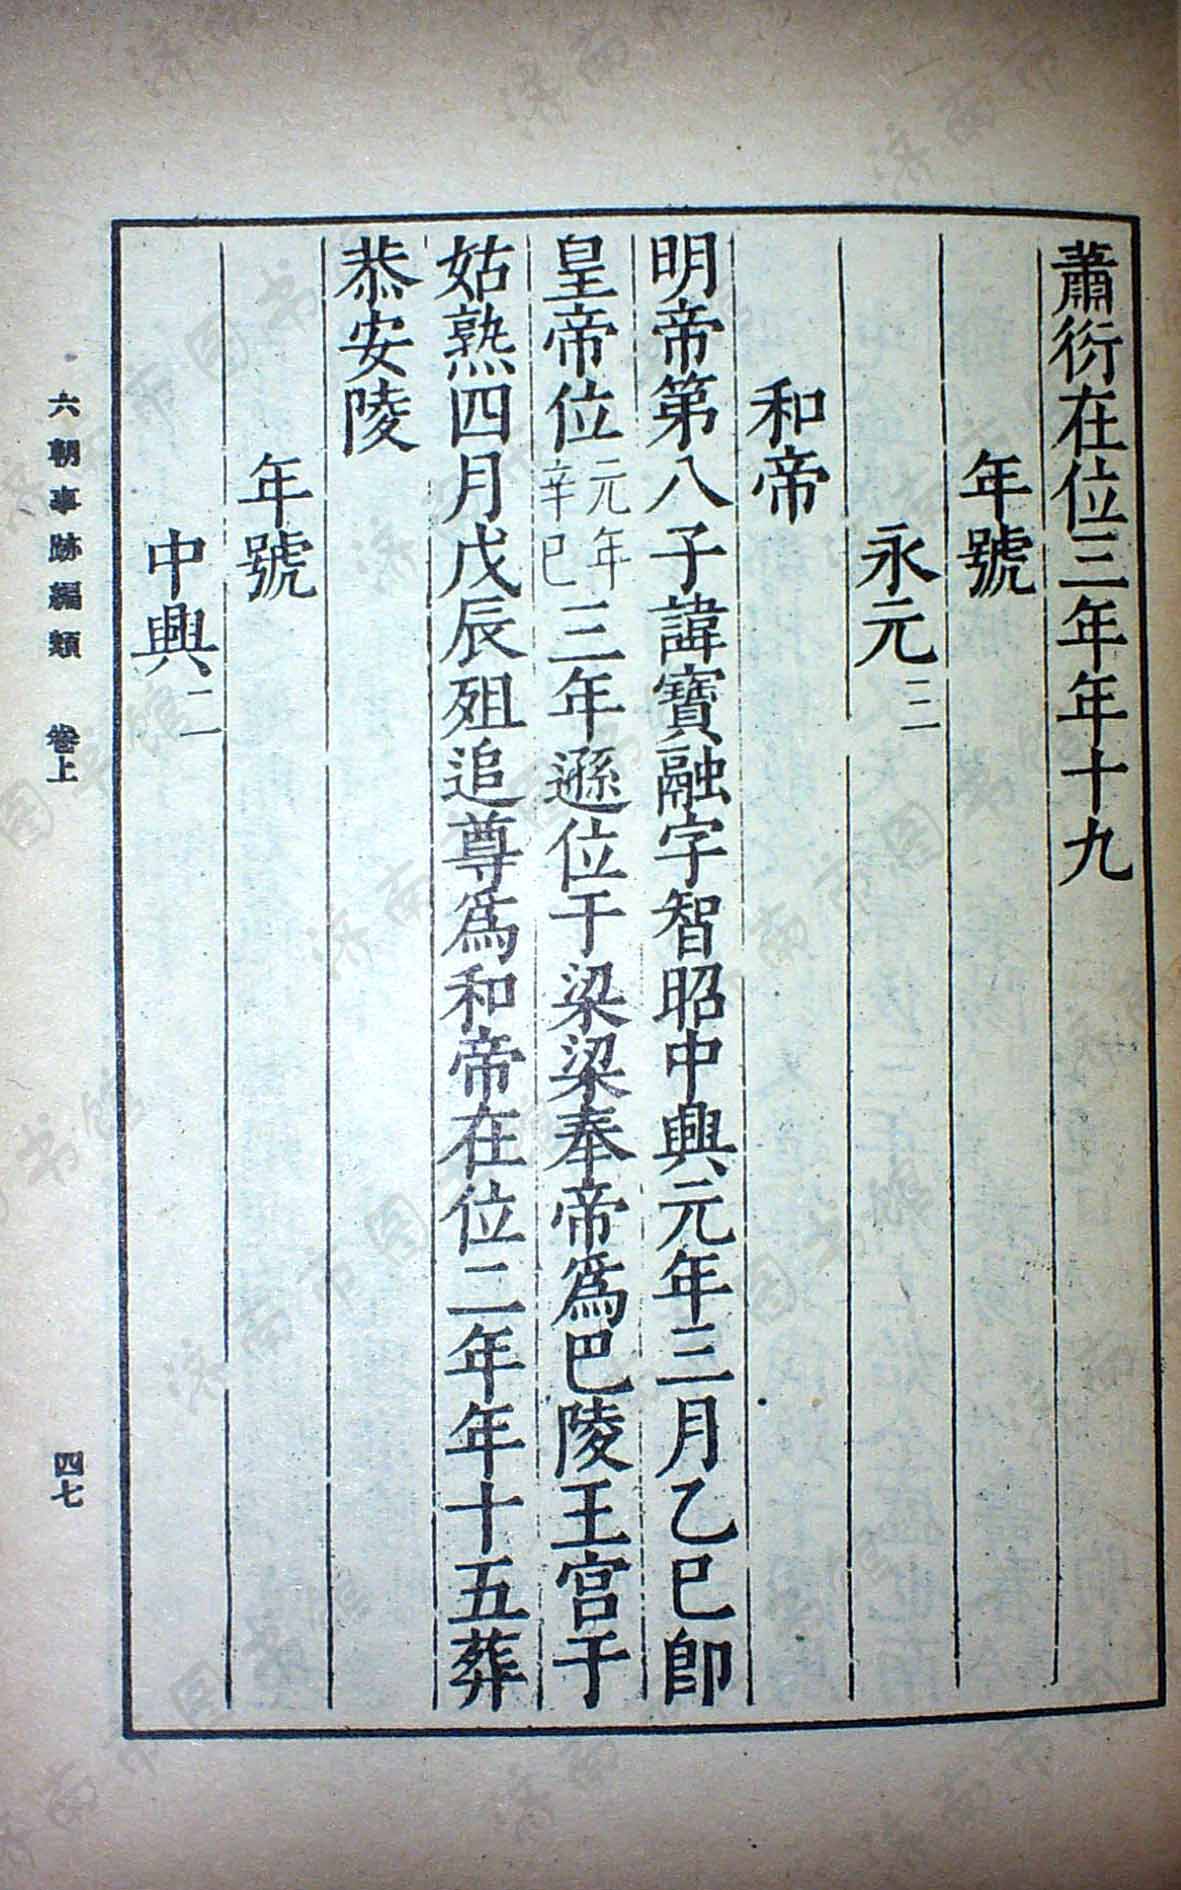 蕭衍在位三年年十九
年號
永元三
和帝
明帝第八子諱寶融字智昭中興元年三月乙巳卽
皇帝位元年辛巳三年遜位于梁梁奉帝爲巴陵王宫于
姑熟四月戊辰殂追尊爲和帝在位二年年十五葬
恭安陵
年號
中興二
六朝事跡編類 卷上
四七
济南市图书馆